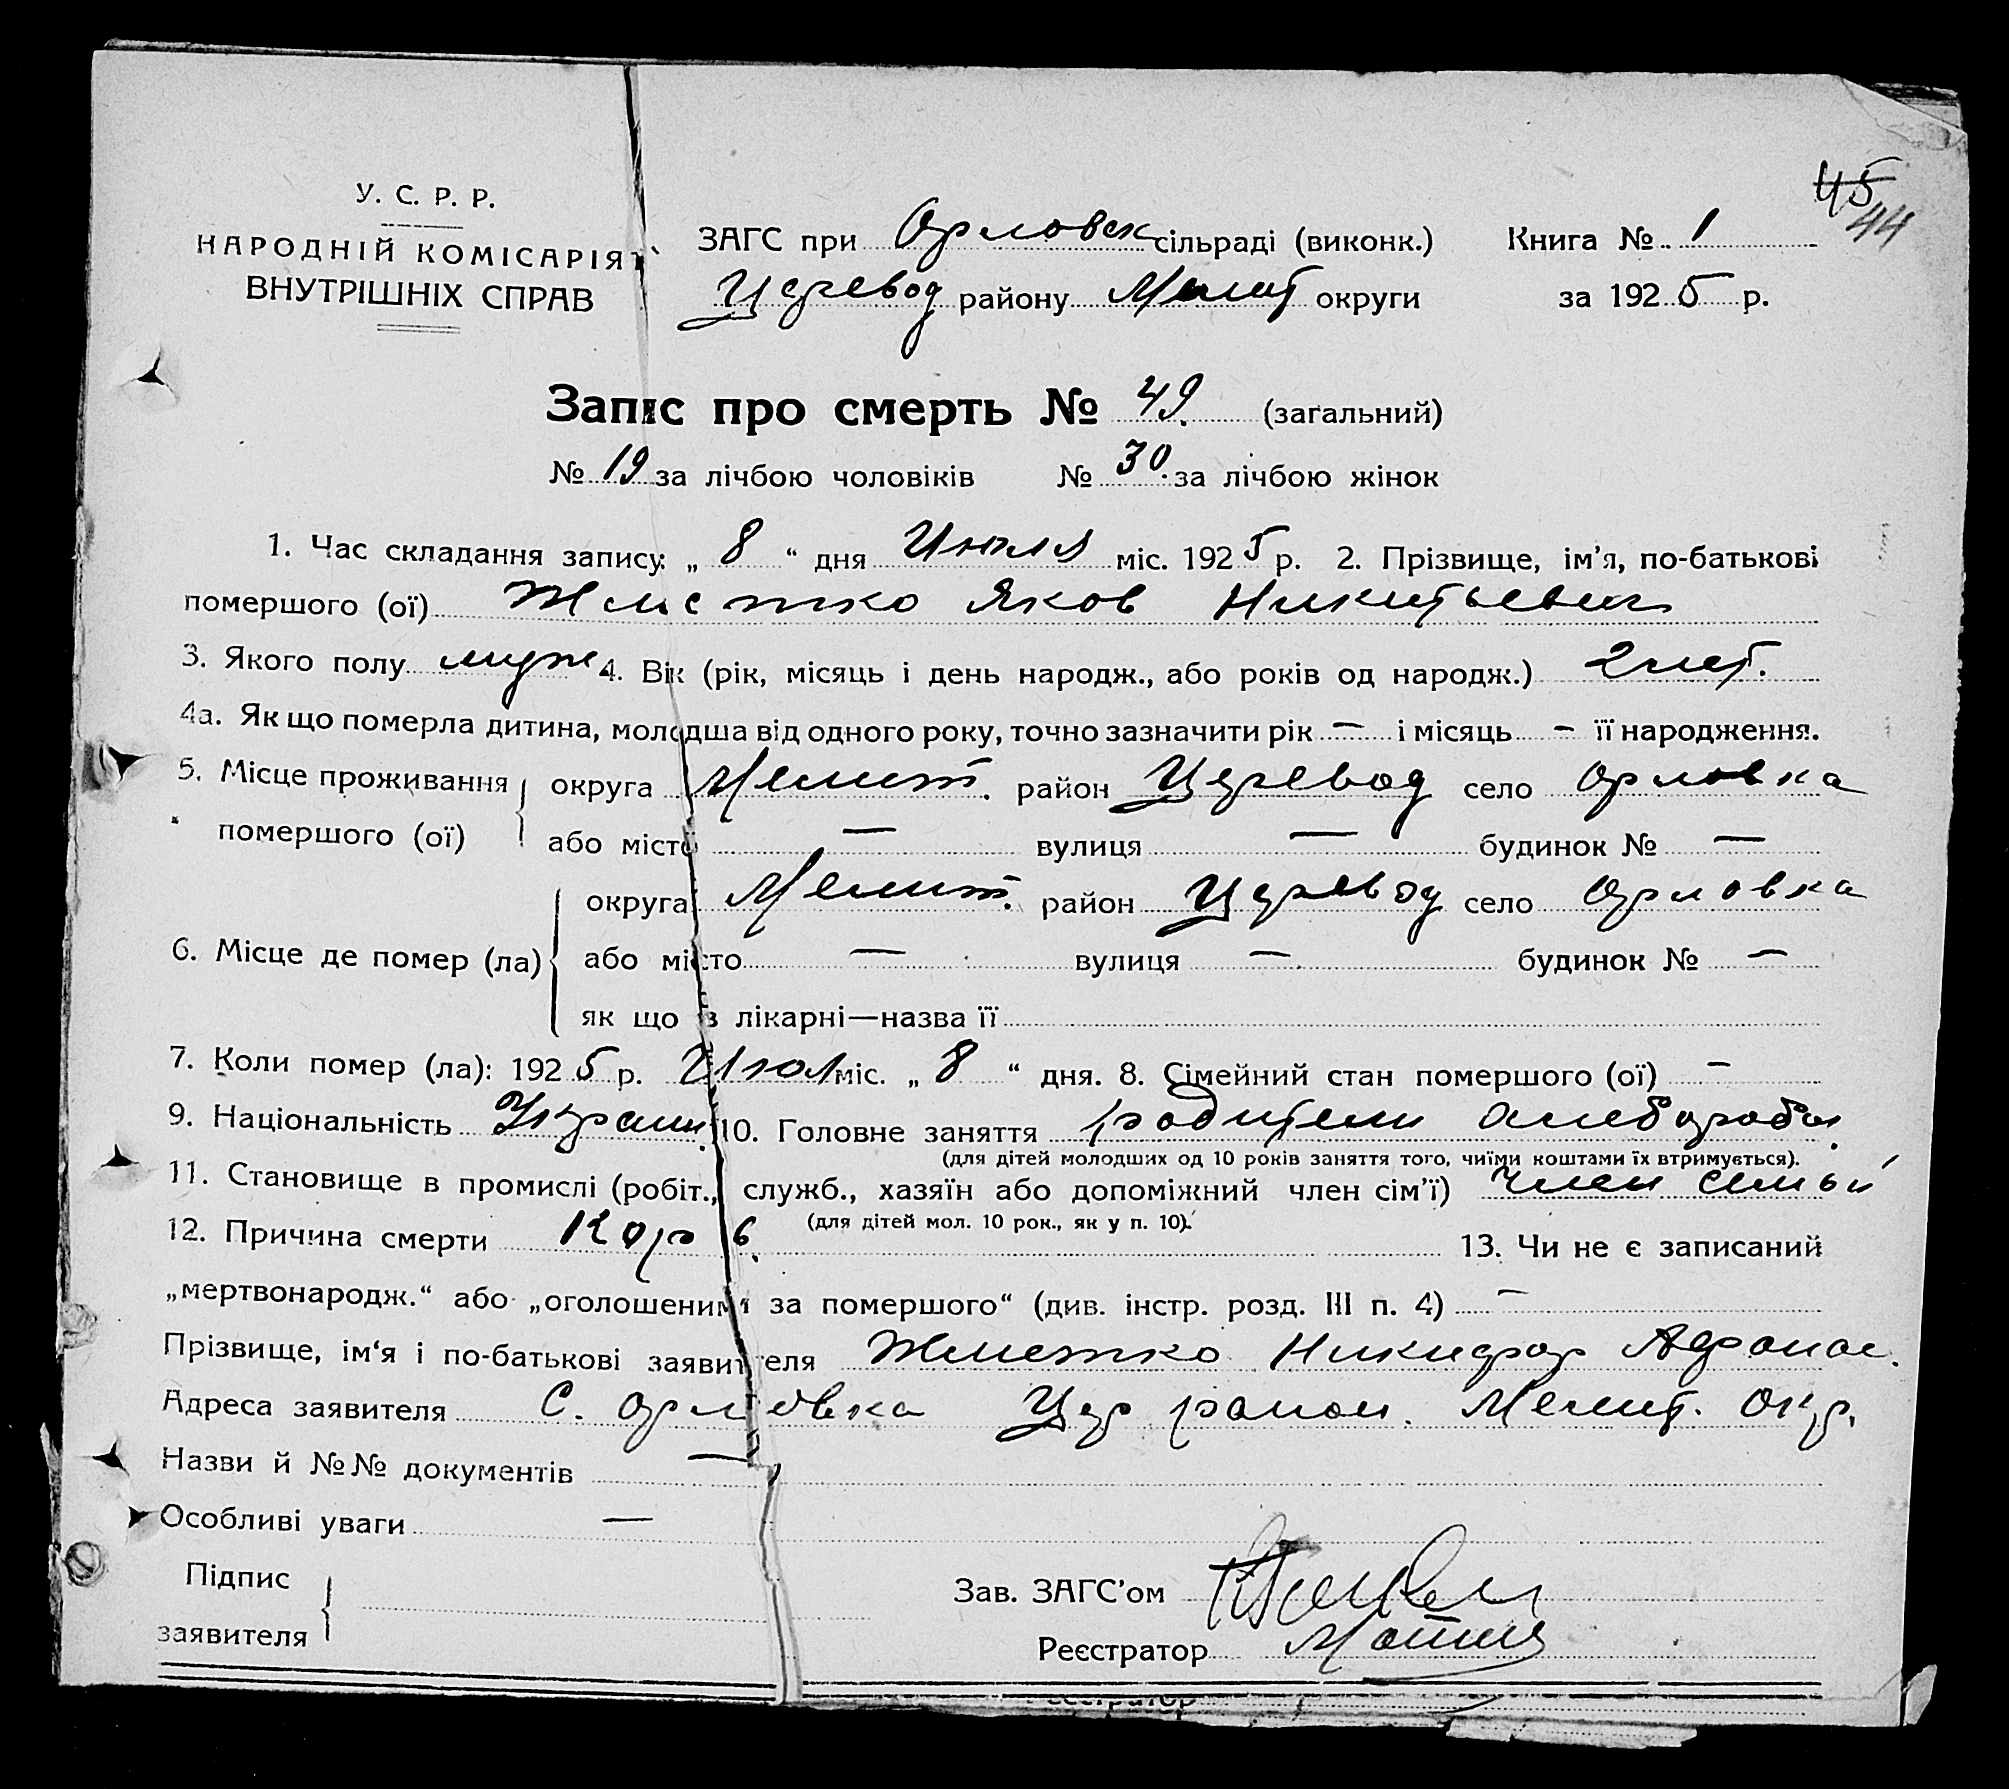 45
44
У. С. Р. Р.
НАРОДНІЙ КОМІСАРІЯТ
ВНУТРІШНІХ СПРАВ
ЗАГС при Орловск сільраді (виконк.) Книга № 1
Церевод району Мелит округи за 1925 р.
Запис про смерть № 49. (загальний)
№ 19 за лічбою чоловіків № 30. за лічбою жінок
1. Час складання запису: „ 8 “ дня Июля міс. 1925 р. 2. Прізвище, ім’я, по-батькові
помершого (ої) Яков Никитьевич
3. Якого полу муж 4. Вік (рік, місяць і день народж., або років од народж.) 2 лет.
4а. Як що померла дитина, молодша від одного року, точно зазначити рік — і місяць — її народження.
5. Місце проживання помершого (ої) округа Мелит. район Церевод село Орловка
або місто — вулиця — будинок № —
6. Місце де помер (ла) округа Мелит. район Церевод село Орловка
або місто — вулиця — будинок № —
як що в лікарні—назва її
7. Коли помер (ла): 1925 р. Июл міс. „ 8 “ дня. 8. Сімейний стан помершого (ої) —
9. Національність Украин. 10. Головне заняття родители хлебороби.
(для дітей молодших од 10 років заняття того, чиїми коштами їх втримується).
11. Становище в промислі (робіт., служб., хазяїн або допоміжний член сім’ї) член семьи
(для дітей мол. 10 рок., як у п. 10).
12. Причина смерти Кор 13. Чи не є записаний
„мертвонародж.“ або „оголошеним за помершого“ (див. інстр. розд. III п. 4) —
Прізвище, ім‘я і по-батькові заявителя Никифор Афанас.
Адреса заявителя С. Орловка Цер район. Мелит. окр.
Назви й №№ документів —
Особливі уваги —
Підпис
заявителя
Зав. ЗАГС’ом
Реєстратор